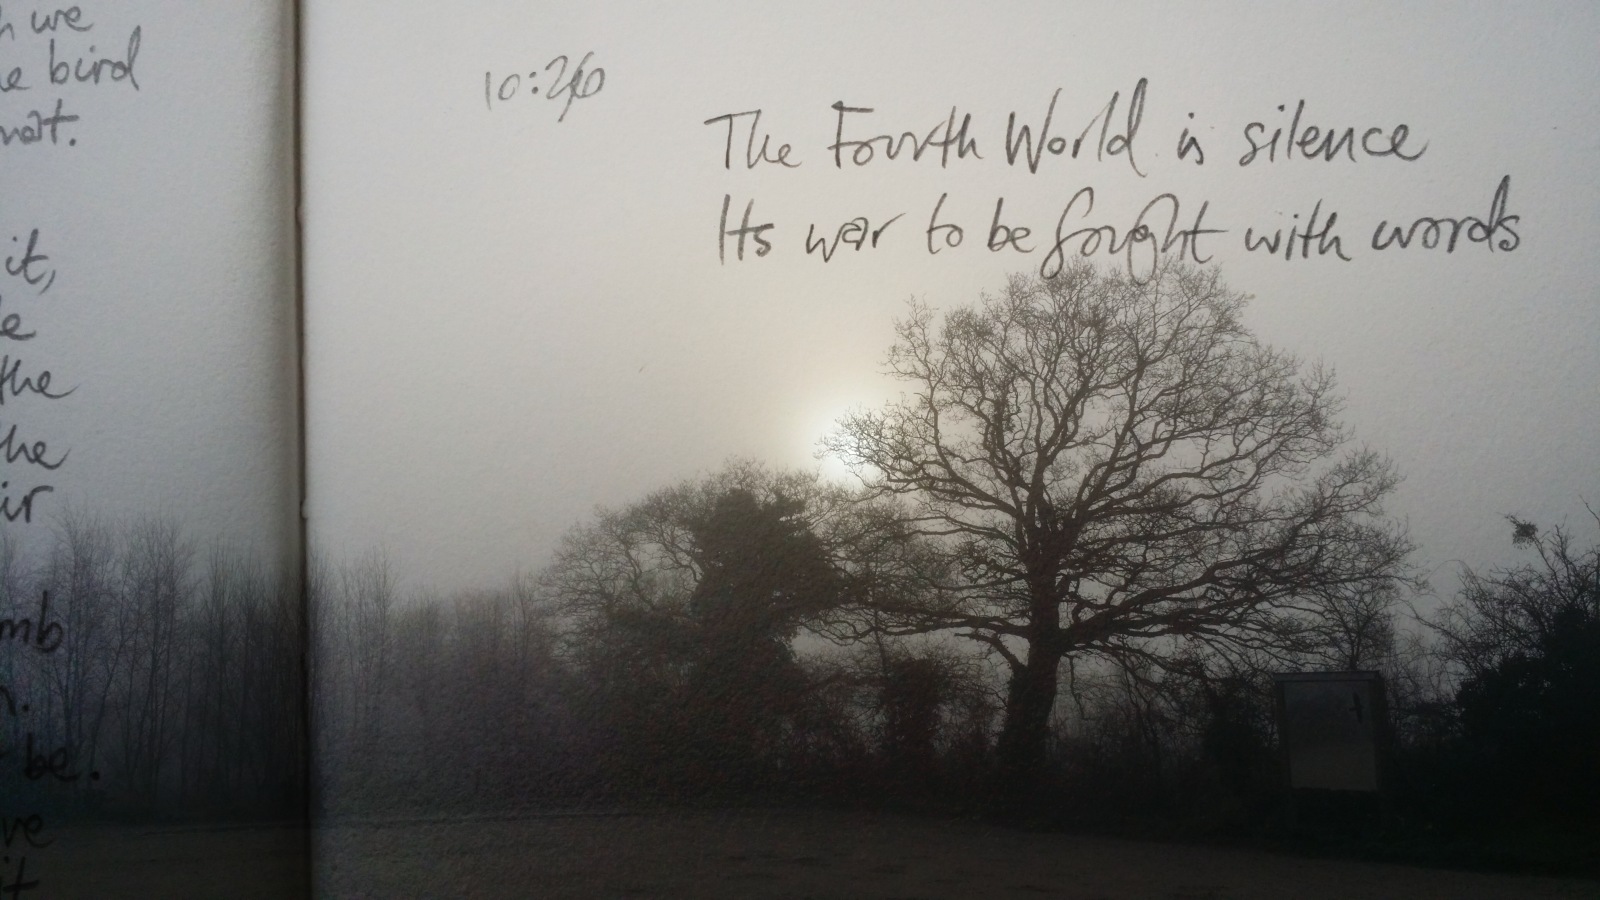 we
bird
it,
the
be.
it
10:26
The Fourth World is silence
Its war to be fought with words